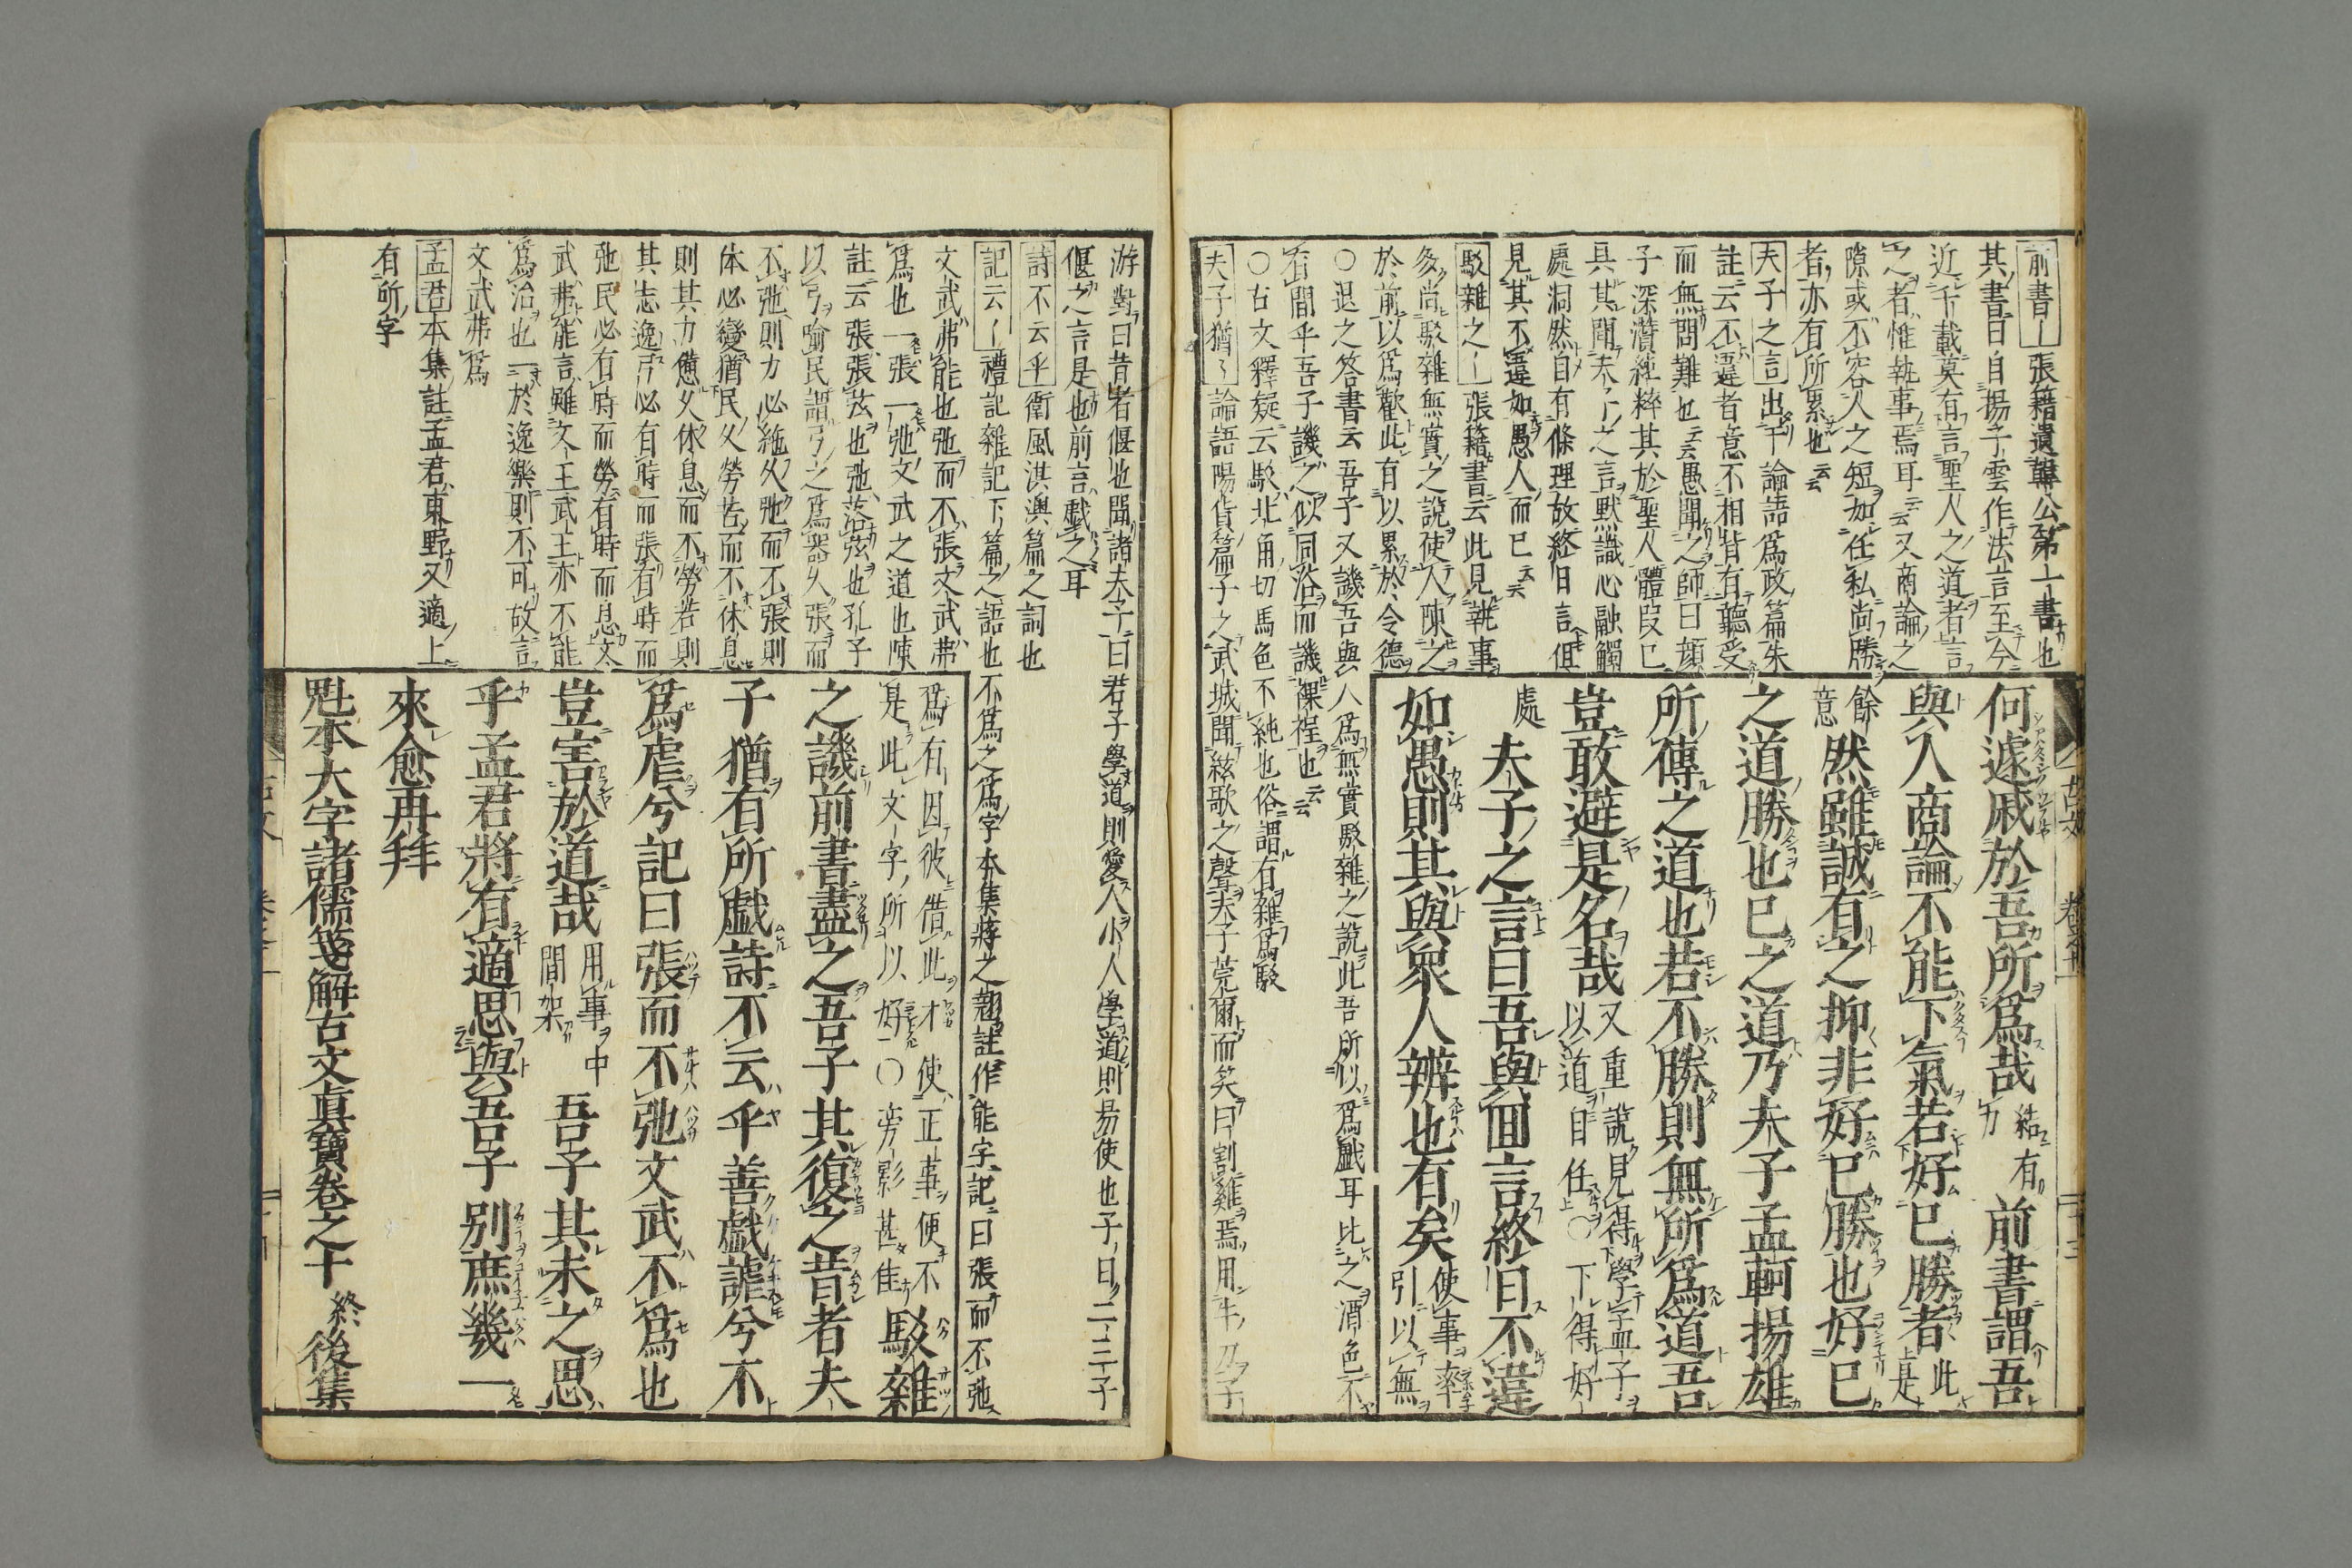 前書｜張籍遺韓公第一書也
其書曰自揚子雲作法言至今
近千載莫有言聖人之道者言
之者惟執事焉耳云云又商論之
隙或不容人之短如任私尚勝
者亦有所累也云云
夫子之言出于論語爲政篇朱
註云不違者意不相背有聽受
而無問難也云云愚聞之師曰顔
子深潛純粹其於聖人體段已
具其聞夫子之言默識心融觸
處洞然自有條理故終日言但
見其不違如愚人而已云云
駁雜之｜張籍書云此見執事
多尚駁雜無實之說使人陳之
於前以爲歡此有以累於令德
○退之答書云吾子又譏吾與人爲無實駁雜之說此吾所以爲戲耳比之酒色不
有間乎吾子譏之似同浴而譏裸裎也云云
○古文釋疑云駁北角切馬色不純也俗謂有雜爲駁
夫子猶〻論語陽貨篇子之武城聞絃歌之聲夫子莞爾而笑曰割雞焉用牛刀子
何遽戚於吾所爲哉 結有力 前書謂吾
與人商論不能下氣若好已勝者 此是
餘意 然雖誠有之抑非好已勝也好已
之道勝也已之道乃夫子孟軻揚雄
所傳之道也若不勝則無所爲道吾
豈敢避是名哉 又重說見得學孟子以道自任○下得好
處 夫子之言曰吾與回言終日不違
如愚則其與衆人辨也有矣 使事率引以無
游對曰昔者偃也聞諸夫子曰君子學道則愛人小人學道則易使也子曰二三子
偃之言是也前言戲之耳
詩不云乎衛風淇澳篇之詞也
記云｜禮記雜記下篇之語也不爲之爲字本集蔣之翹註作能字記曰張而不弛
文武弗能也弛而不張文武弗
爲也一張一弛文武之道也陳
註云張張弦也弛落弦也孔子
以弓喻民謂弓之爲器久張而
不弛則力必絶久弛而不張則
体必變猶民久勞苦而不休息
則其力憊久休息而不勞若則
其志逸弓必有時而張有時而
弛民必有時而勞有時而息文
武弗能言雖文王武王亦不能
爲治也一於逸樂則不可故言
文武弗爲
孟君本集註孟君東野又適上
有所字
爲有因彼借此才使正事便不
是此文字所以好○旁影甚佳 駁雜
之譏前書盡之吾子其復之昔者夫
子猶有所戲詩不云乎善戲謔兮不
爲虐兮記曰張而不弛文武不爲也
豈害於道哉 用事中間架 吾子其未之思
乎孟君將有適思與吾子别庶幾一
來愈再拜
魁本大字諸儒箋解古文真寶卷之十終後集